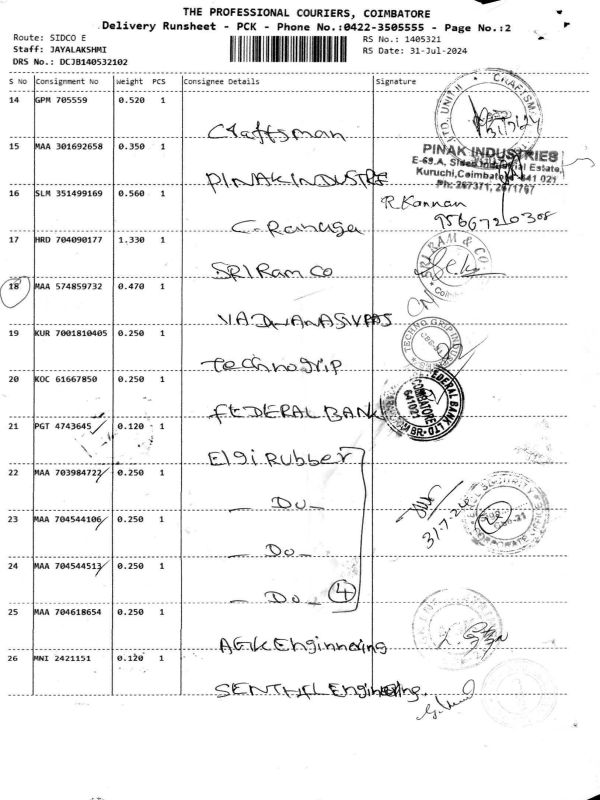 THE PROFESSIONAL COURIERS, COIMBATORE
Delivery Runsheet - PCK - Phone No.:0422-3505555 - Page No.:2
Route: SIDCO E
RS No.: 1405321
Staff: JAYALAKSHMI
RS Date: 31-Jul-2024
DRS No.: DCJB140532102
S No Consignment No Weight PCS Consignee Details Signature
14 GPM 705559 0.520 1
Craftsman
15 MAA 301692658 0.350 1
PINAK INDUSTRIES
E-69.A, Sidco Industrial Estate,
Kuruchi, Coimbatore 641 021
Ph: 267371, 2671767
PINAK INDUSTRE
16 SLM 351499169 0.560 1
R.Kannan
9566720308
C. Ranuga
17 HRD 704090177 1.330 1
SRI RAM & CO
SRI Ram Co
18 MAA 574859732 0.470 1
CNA
19 KUR 7001810405 0.250 1
TECHNO GRIP
Technogrip
20 KOC 61667850 0.250 1
FEDERAL BANK LTD
COIMBATORE
641021
FEDERAL BANK
21 PGT 4743645 0.120 1
Elgi Rubber
22 MAA 703984722 0.250 1
- Do -
31.7.24
23 MAA 704544106 0.250 1
- Do -
24 MAA 704544513 0.250 1
- Do - 4
25 MAA 704618654 0.250 1
AGK Enginnering
26 MNI 2421151 0.120 1
SENTHIL Engineering.